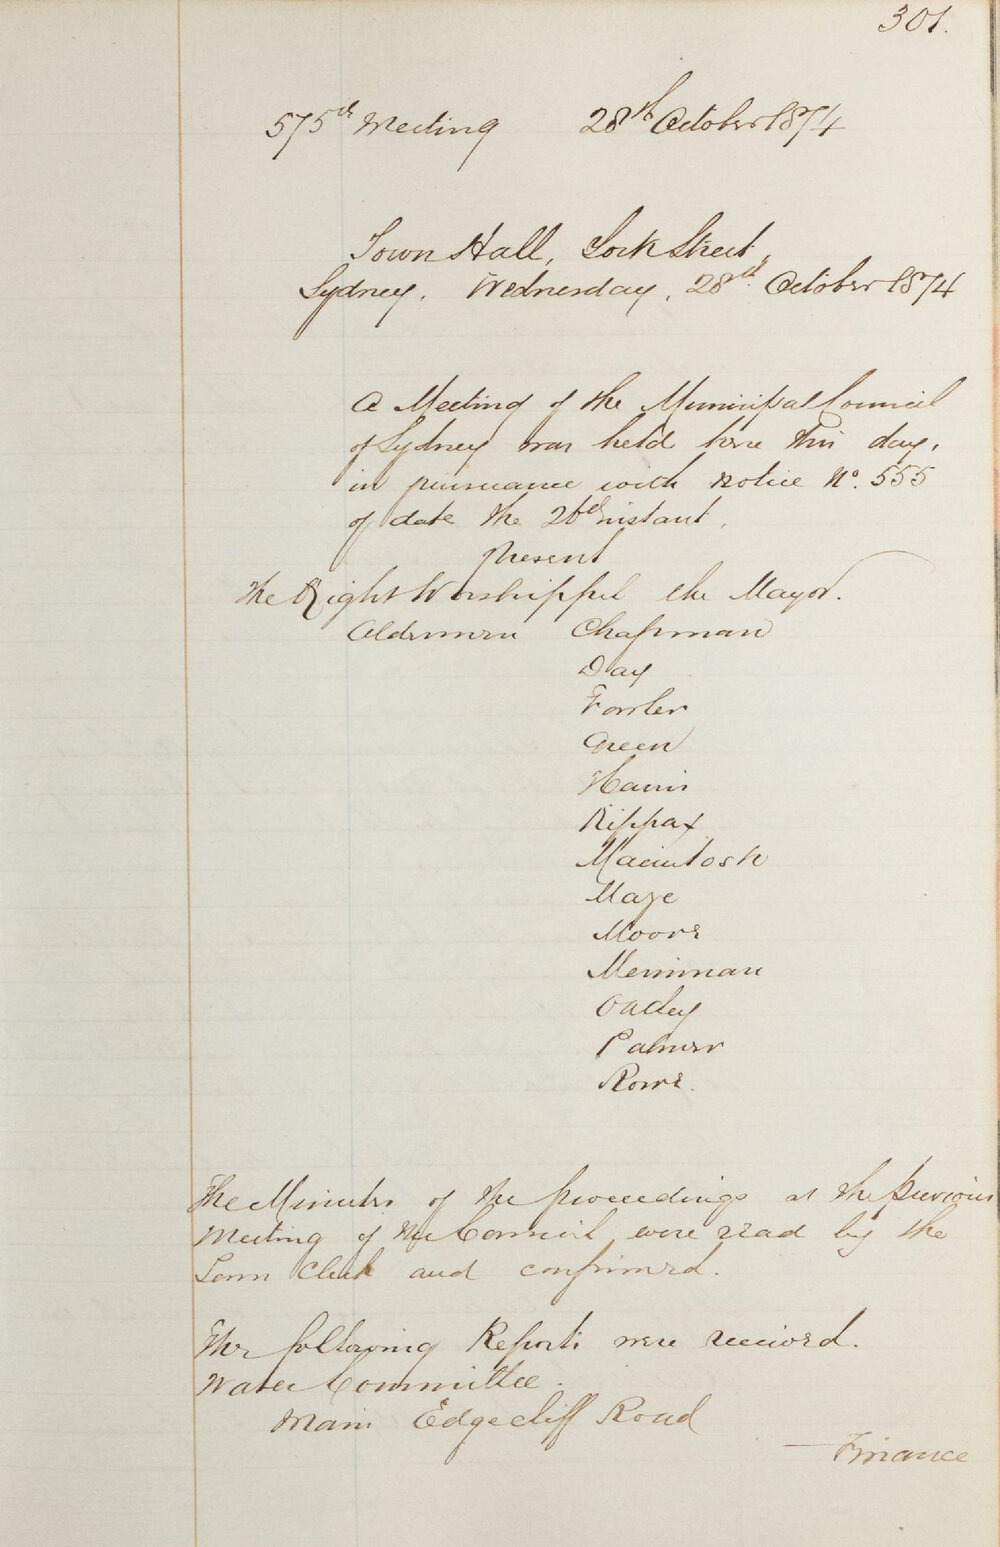 301.
575th Meeting 28th October 1874
Town Hall, York Street,
Sydney, Wednesday, 28th October 1874
A Meeting of the Municipal Council
of Sydney was held here this day,
in pursuance with notice No. 555
of date the 26th instant.
Present
The Right Worshipful the Mayor.
Aldermen Chapman
Day
Fowler
Green
Harris
Kippax
Macintosh
Maze
Moore
Merriman
Oatley
Palmer
Rowe.
The Minutes of the proceedings at the previous
Meeting of the Council were read by the
Town Clerk and confirmed.
The following Reports were received.
Water Committee.
Main Edgecliff Road
— Finance